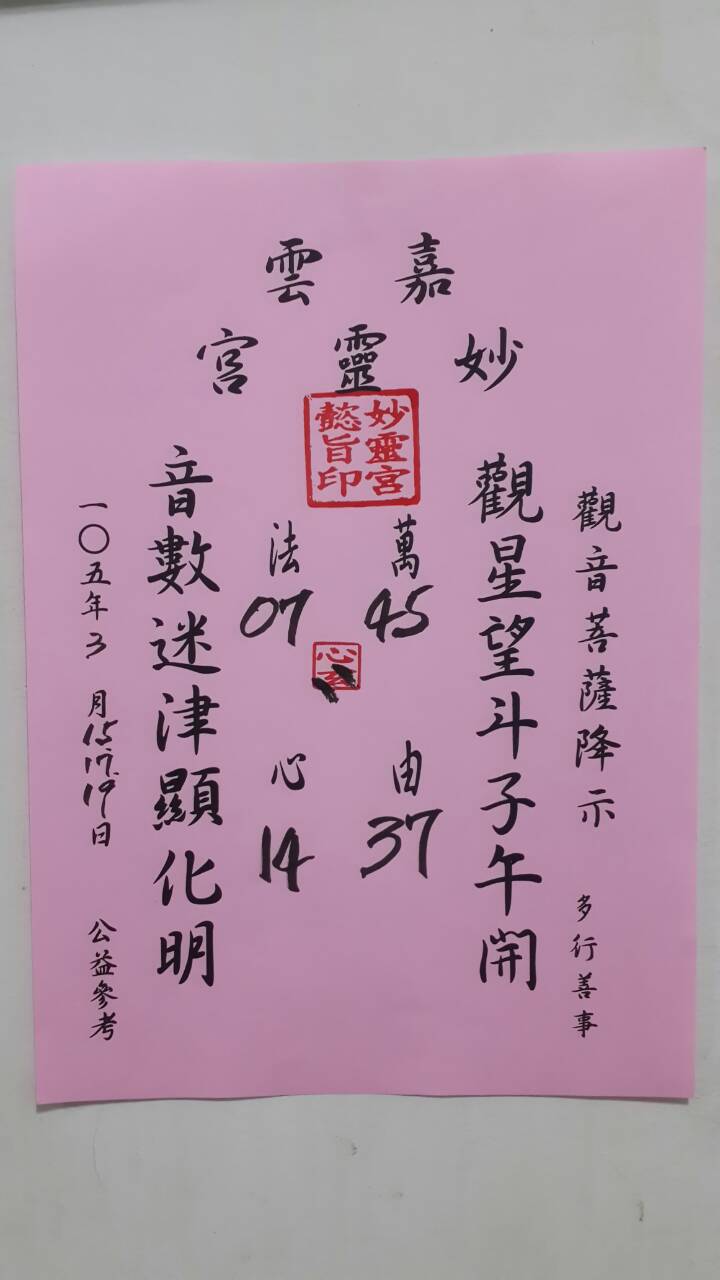 嘉雲
妙靈宮
妙靈宮
懿旨印
觀音菩薩降示 多行善事
觀星望斗子午開
萬45 由37
法07 心14
心
音數迷津顯化明
一〇五年3月15.17.19日 公益參考